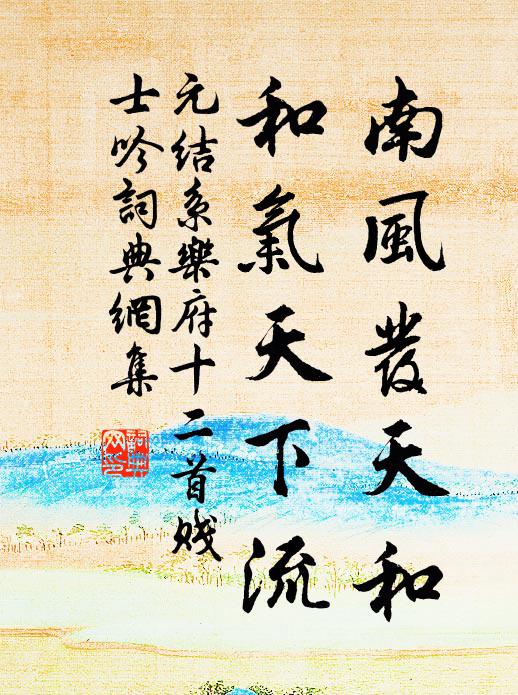 南風發天和
和氣天下流
元結系樂府十二首賤
士吟詞典網集